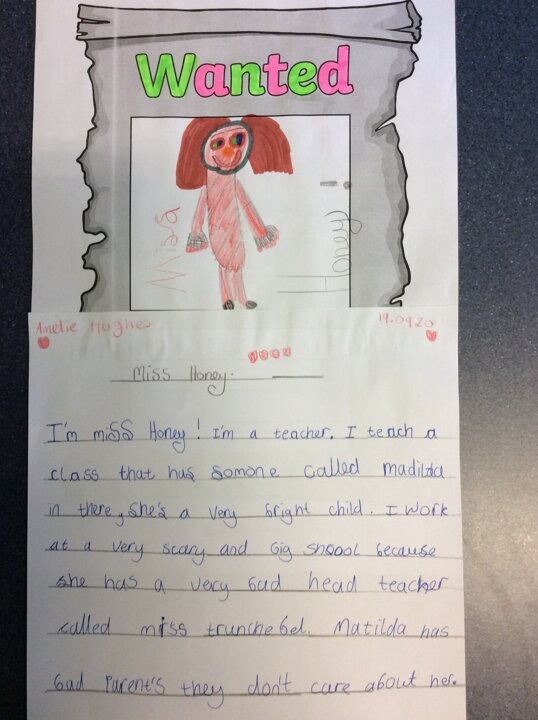 Wanted
Miss
Honey
Amelie Hughes
19.09.20
Miss Honey.
I'm miss Honey! I'm a teacher. I teach a
class that has somone called madilda
in there, she's a very bright child. I work
at a very scary and big shool because
she has a very bad head teacher
called miss trunchebel. Matilda has
bad Parent's they don't care about her.